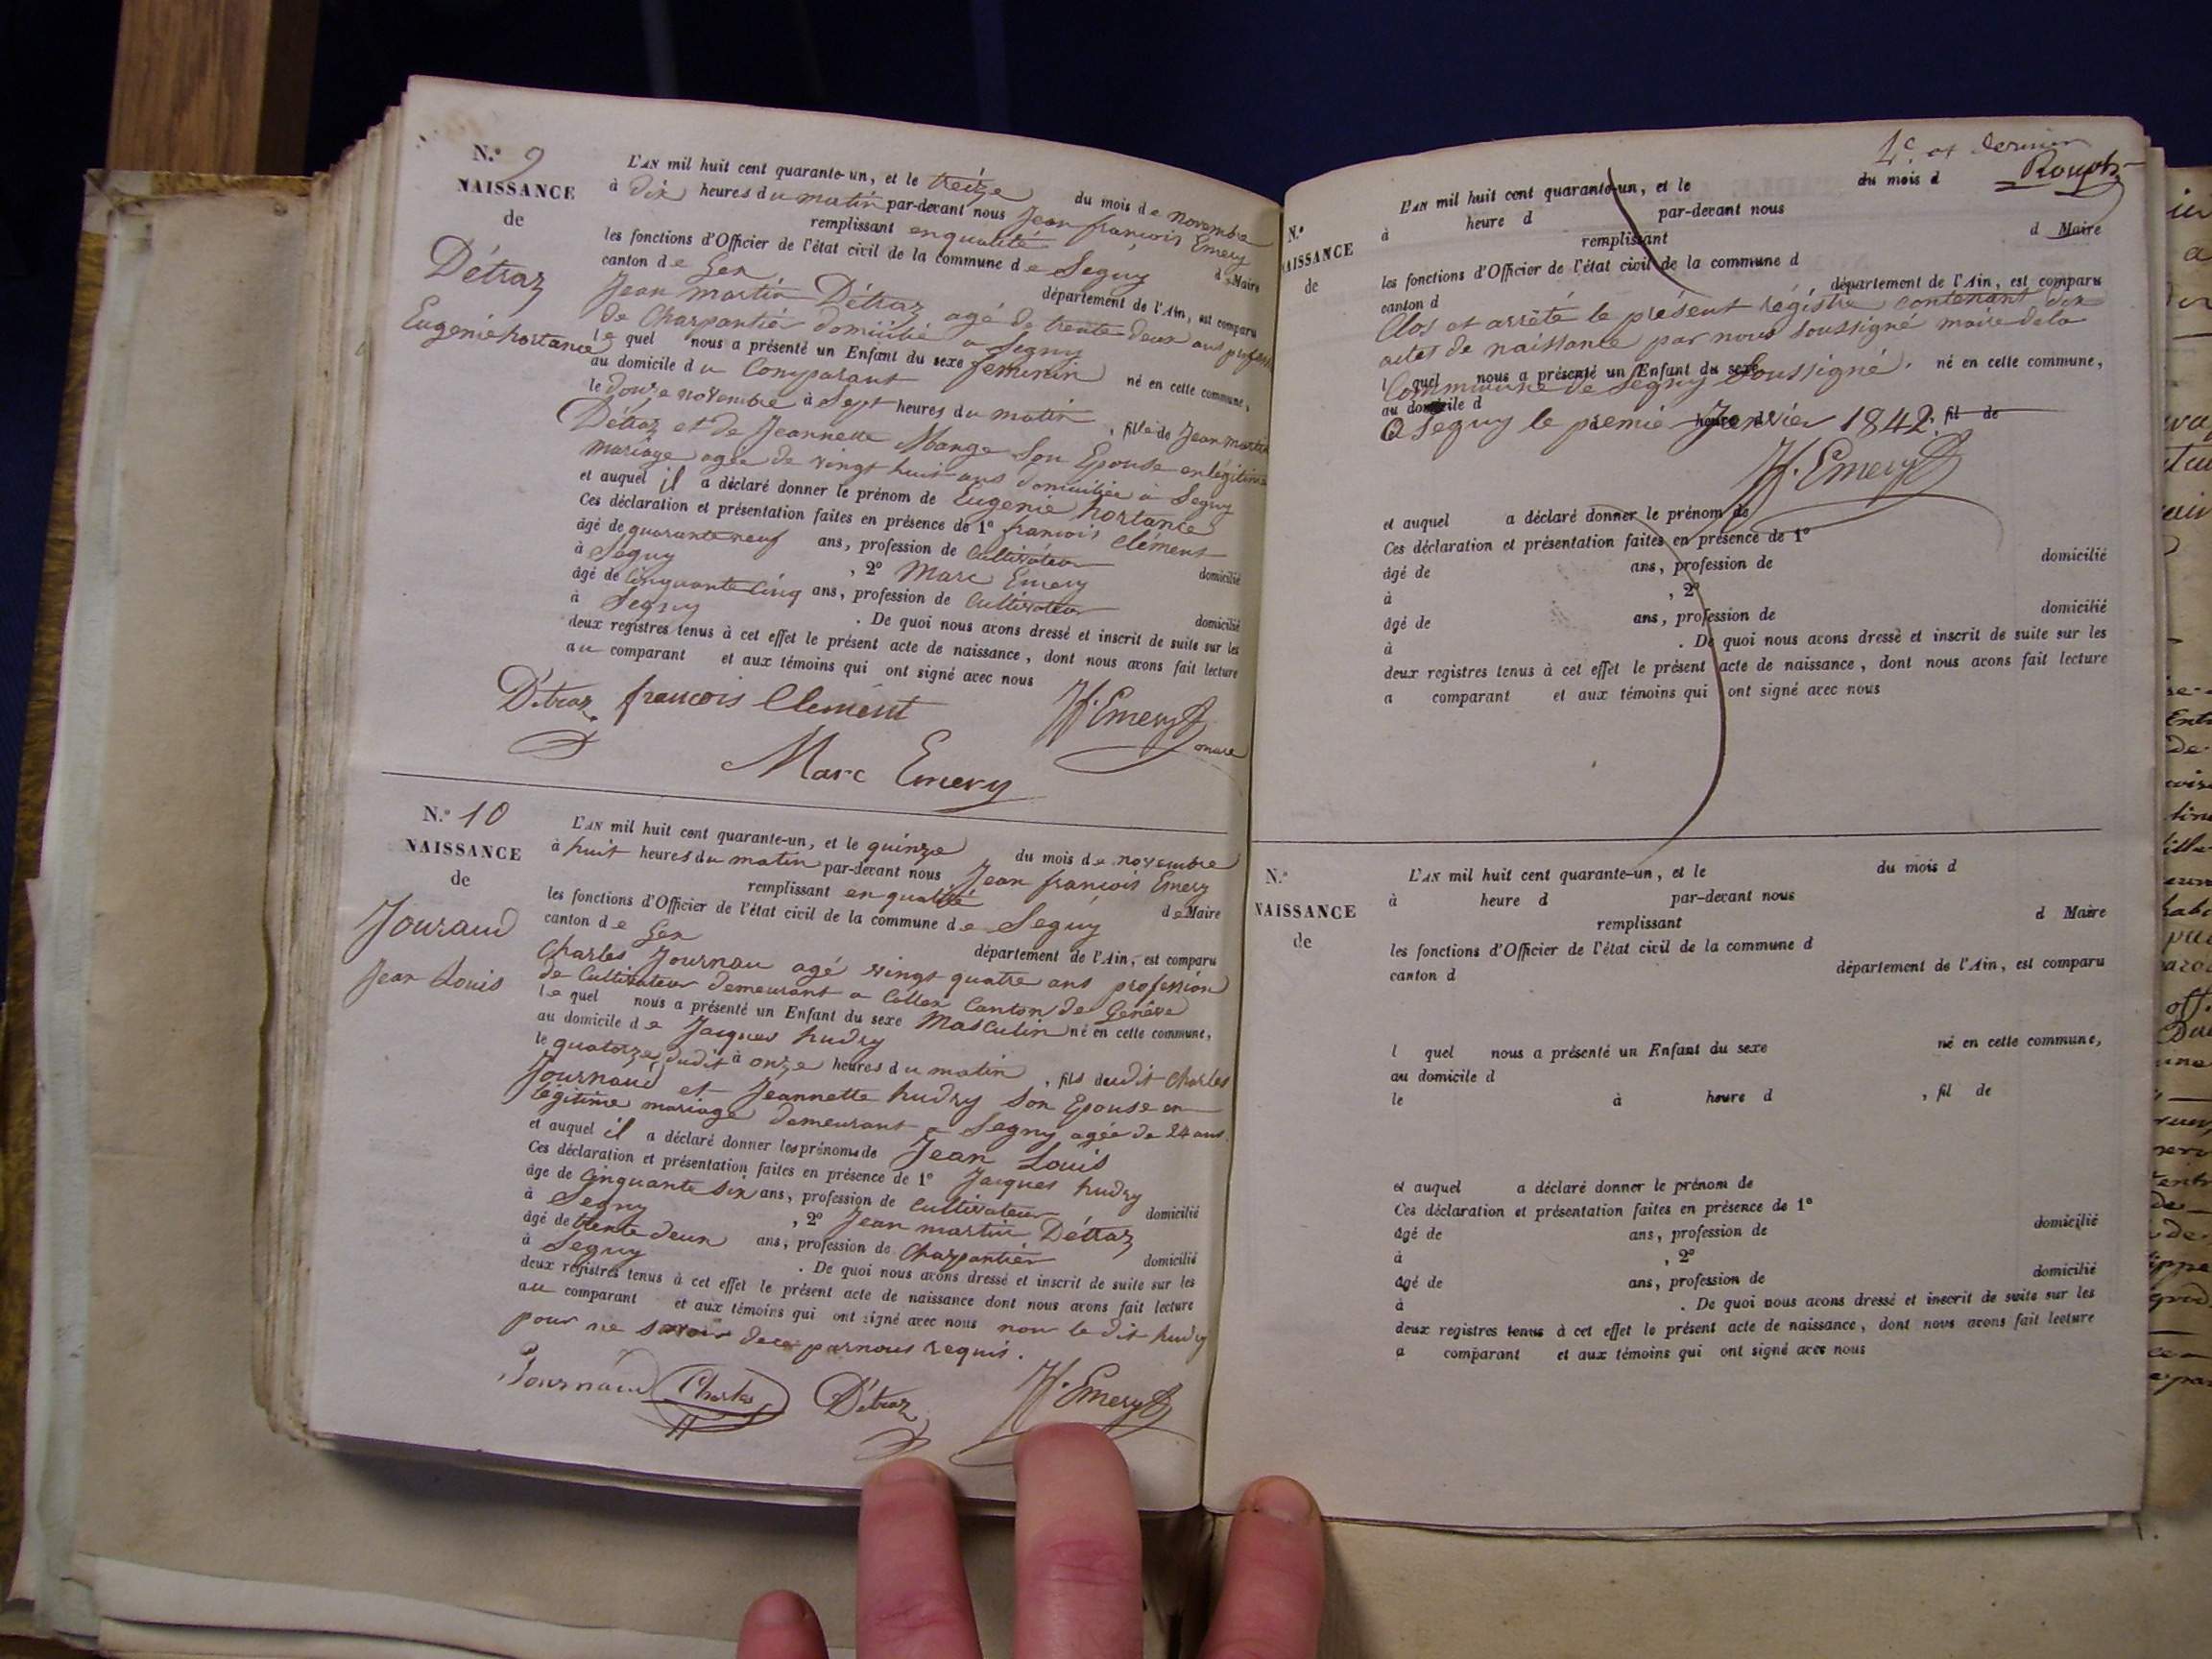 N.° 9
NAISSANCE
de
Détraz
Eugenie hortance
L'AN mil huit cent quarante-un, et le treize du mois de novembre
à dix heures du matin par-devant nous Jean françois Emery
remplissant en qualité de Maire
les fonctions d'Officier de l'état civil de la commune de Segny
canton de Gex département de l'Ain, est comparu
Jean martin Détraz agé de trente deux ans profession
de Charpantier domicilié a Segny
le quel nous a présenté un Enfant du sexe feminin né en cette commune,
au domicile du Comparant
le douze novembre à Sept heures du matin, fille de Jean martin
Détraz et de Jeannette Mange Son Epouse en légitime
mariage agée de vingt huit ans domiciliée à Segny
et auquel il a déclaré donner le prénom de Eugenie hortance
Ces déclaration et présentation faites en présence de 1° françois Clément
âgé de quarante neuf ans, profession de Cultivateur domicilié
à Segny, 2° Marc Emery
âgé de Cinquante Cinq ans, profession de Cultivateur domicilié
à Segny. De quoi nous avons dressé et inscrit de suite sur les
deux registres tenus à cet effet le présent acte de naissance, dont nous avons fait lecture
au comparant et aux témoins qui ont signé avec nous
Détraz françois Clement Jf. Emery maire
Marc Emery
N.° 10
NAISSANCE
de
Journaud
Jean Louis
L'AN mil huit cent quarante-un, et le quinze du mois de novembre
à huit heures du matin par-devant nous Jean françois Emery
remplissant en qualité de Maire
les fonctions d'Officier de l'état civil de la commune de Segny
canton de Gex département de l'Ain, est comparu
Charles Journau agé vingt quatre ans profession
de Cultivateur demeurant a Collex Canton de Genève
le quel nous a présenté un Enfant du sexe Masculin né en cette commune,
au domicile de Jacques hudry
le quatorze dudit à onze heures du matin, fils dudit Charles
Journaud et Jeannette hudry Son Epouse en
légitime mariage demeurant a Segny agée de 24 ans.
et auquel il a déclaré donner les prénoms de Jean Louis
Ces déclaration et présentation faites en présence de 1° Jacques hudry
âge de Cinquante Six ans, profession de Cultivateur domicilié
à Segny, 2° Jean martin Détraz
âgé de trente deux ans, profession de Charpantier domicilié
à Segny. De quoi nous avons dressé et inscrit de suite sur les
deux registres tenus à cet effet le présent acte de naissance dont nous avons fait lecture
au comparant et aux témoins qui ont signé avec nous non le dit hudry
pour ne savoir dece par nous requis.
Journaud Charles Détraz Jf. Emery
4e et dernier
Rouph
N.°
NAISSANCE
de
L'AN mil huit cent quarante-un, et le du mois d
à heure d par-devant nous
remplissant d Maire
les fonctions d'Officier de l'état civil de la commune d
canton d département de l'Ain, est comparu
Clos et arrêté le présent régistre contenant dix
actes de naissance par nous soussigné maire de la
l quel nous a présenté un Enfant du sexe né en cette commune,
Commune de Segny Soussigné.
au domicile d
A Segny le premier Janvier 1842.
heure d fil de
Jf. Emery
et auquel a déclaré donner le prénom de
Ces déclaration et présentation faites en présence de 1°
âgé de ans, profession de domicilié
à , 2°
âgé de ans, profession de domicilié
à . De quoi nous avons dressé et inscrit de suite sur les
deux registres tenus à cet effet le présent acte de naissance, dont nous avons fait lecture
a comparant et aux témoins qui ont signé avec nous
N.°
NAISSANCE
de
L'AN mil huit cent quarante-un, et le du mois d
à heure d par-devant nous
remplissant d Maire
les fonctions d'Officier de l'état civil de la commune d
canton d département de l'Ain, est comparu
l quel nous a présenté un Enfant du sexe né en cette commune,
au domicile d
le à heure d , fil de
et auquel a déclaré donner le prénom de
Ces déclaration et présentation faites en présence de 1°
âgé de ans, profession de domicilié
à , 2°
âgé de ans, profession de domicilié
à . De quoi nous avons dressé et inscrit de suite sur les
deux registres tenus à cet effet le présent acte de naissance, dont nous avons fait lecture
a comparant et aux témoins qui ont signé avec nous